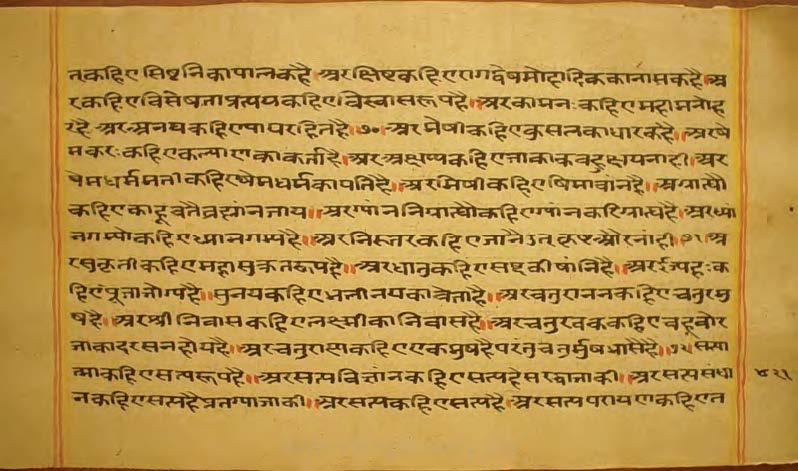 त कहिए सिष्टनि का पालक है॥ अर क्लिष्ट कहिए राग द्वेष मोहादिक का नासक है॥ अ
र कहिए विसेषता प्रत्यय कहिए विस्वास रूप है॥ अर कामनः कहिए महा मनोह
र है॥ अर अनय कहिए पाप रहित है॥ ७०॥ अर षेमी कहिए कुसल का धारक है॥ अर षे
मकरः कहिए कल्याण का कर्ता है॥ अर अक्षय्य कहिए जाका कबहु क्षय नाही॥ अर
षेमधर्मपती कहिए षेम धर्म का पति है॥ अर षिमी कहिए षिमावांन है॥ अग्राह्यौ
कहिए काहू वतै ग्रह्यांन जाय॥ अर ग्यांन निग्राह्यौ कहिए ग्यांन करि ग्राह्य है॥ अर ध्यां
नगम्यो कहिए ध्यान गम्य है॥ अर निरुतर कहिए जानै उतकृष्ट और नांही॥ ७१ अ
र सुकृती कहिए महा सुक्रत रूप है॥ अर धातु कहिए सब्द की षांनि है॥ अर ईज्यहः क
हिए पूजा जोग्य है॥ सुनय कहिए भली नय का वेता है॥ अर चतुरानन कहिए चतुरमु
ष है॥ अर श्री निवास कहिए लक्ष्मी का निवास है॥ अर चतुरवक्र कहिए चहू वोर
जाका दरसन होय है॥ अर चतुरास्य कहिए एक मुष है परंतु चतुर्मुष भासै है॥ ७२ सत्या
त्मा कहिए सत्य रूप है॥ अर सत्य विज्ञांन कहिए सत्य है सरधा जाकी॥ अर सत्य संधा
न कहिए सत्य है प्रतग्या जाकी॥ अर सत्य कहिए सत्य है॥ अर सत्य परायण कहिए त
४२५